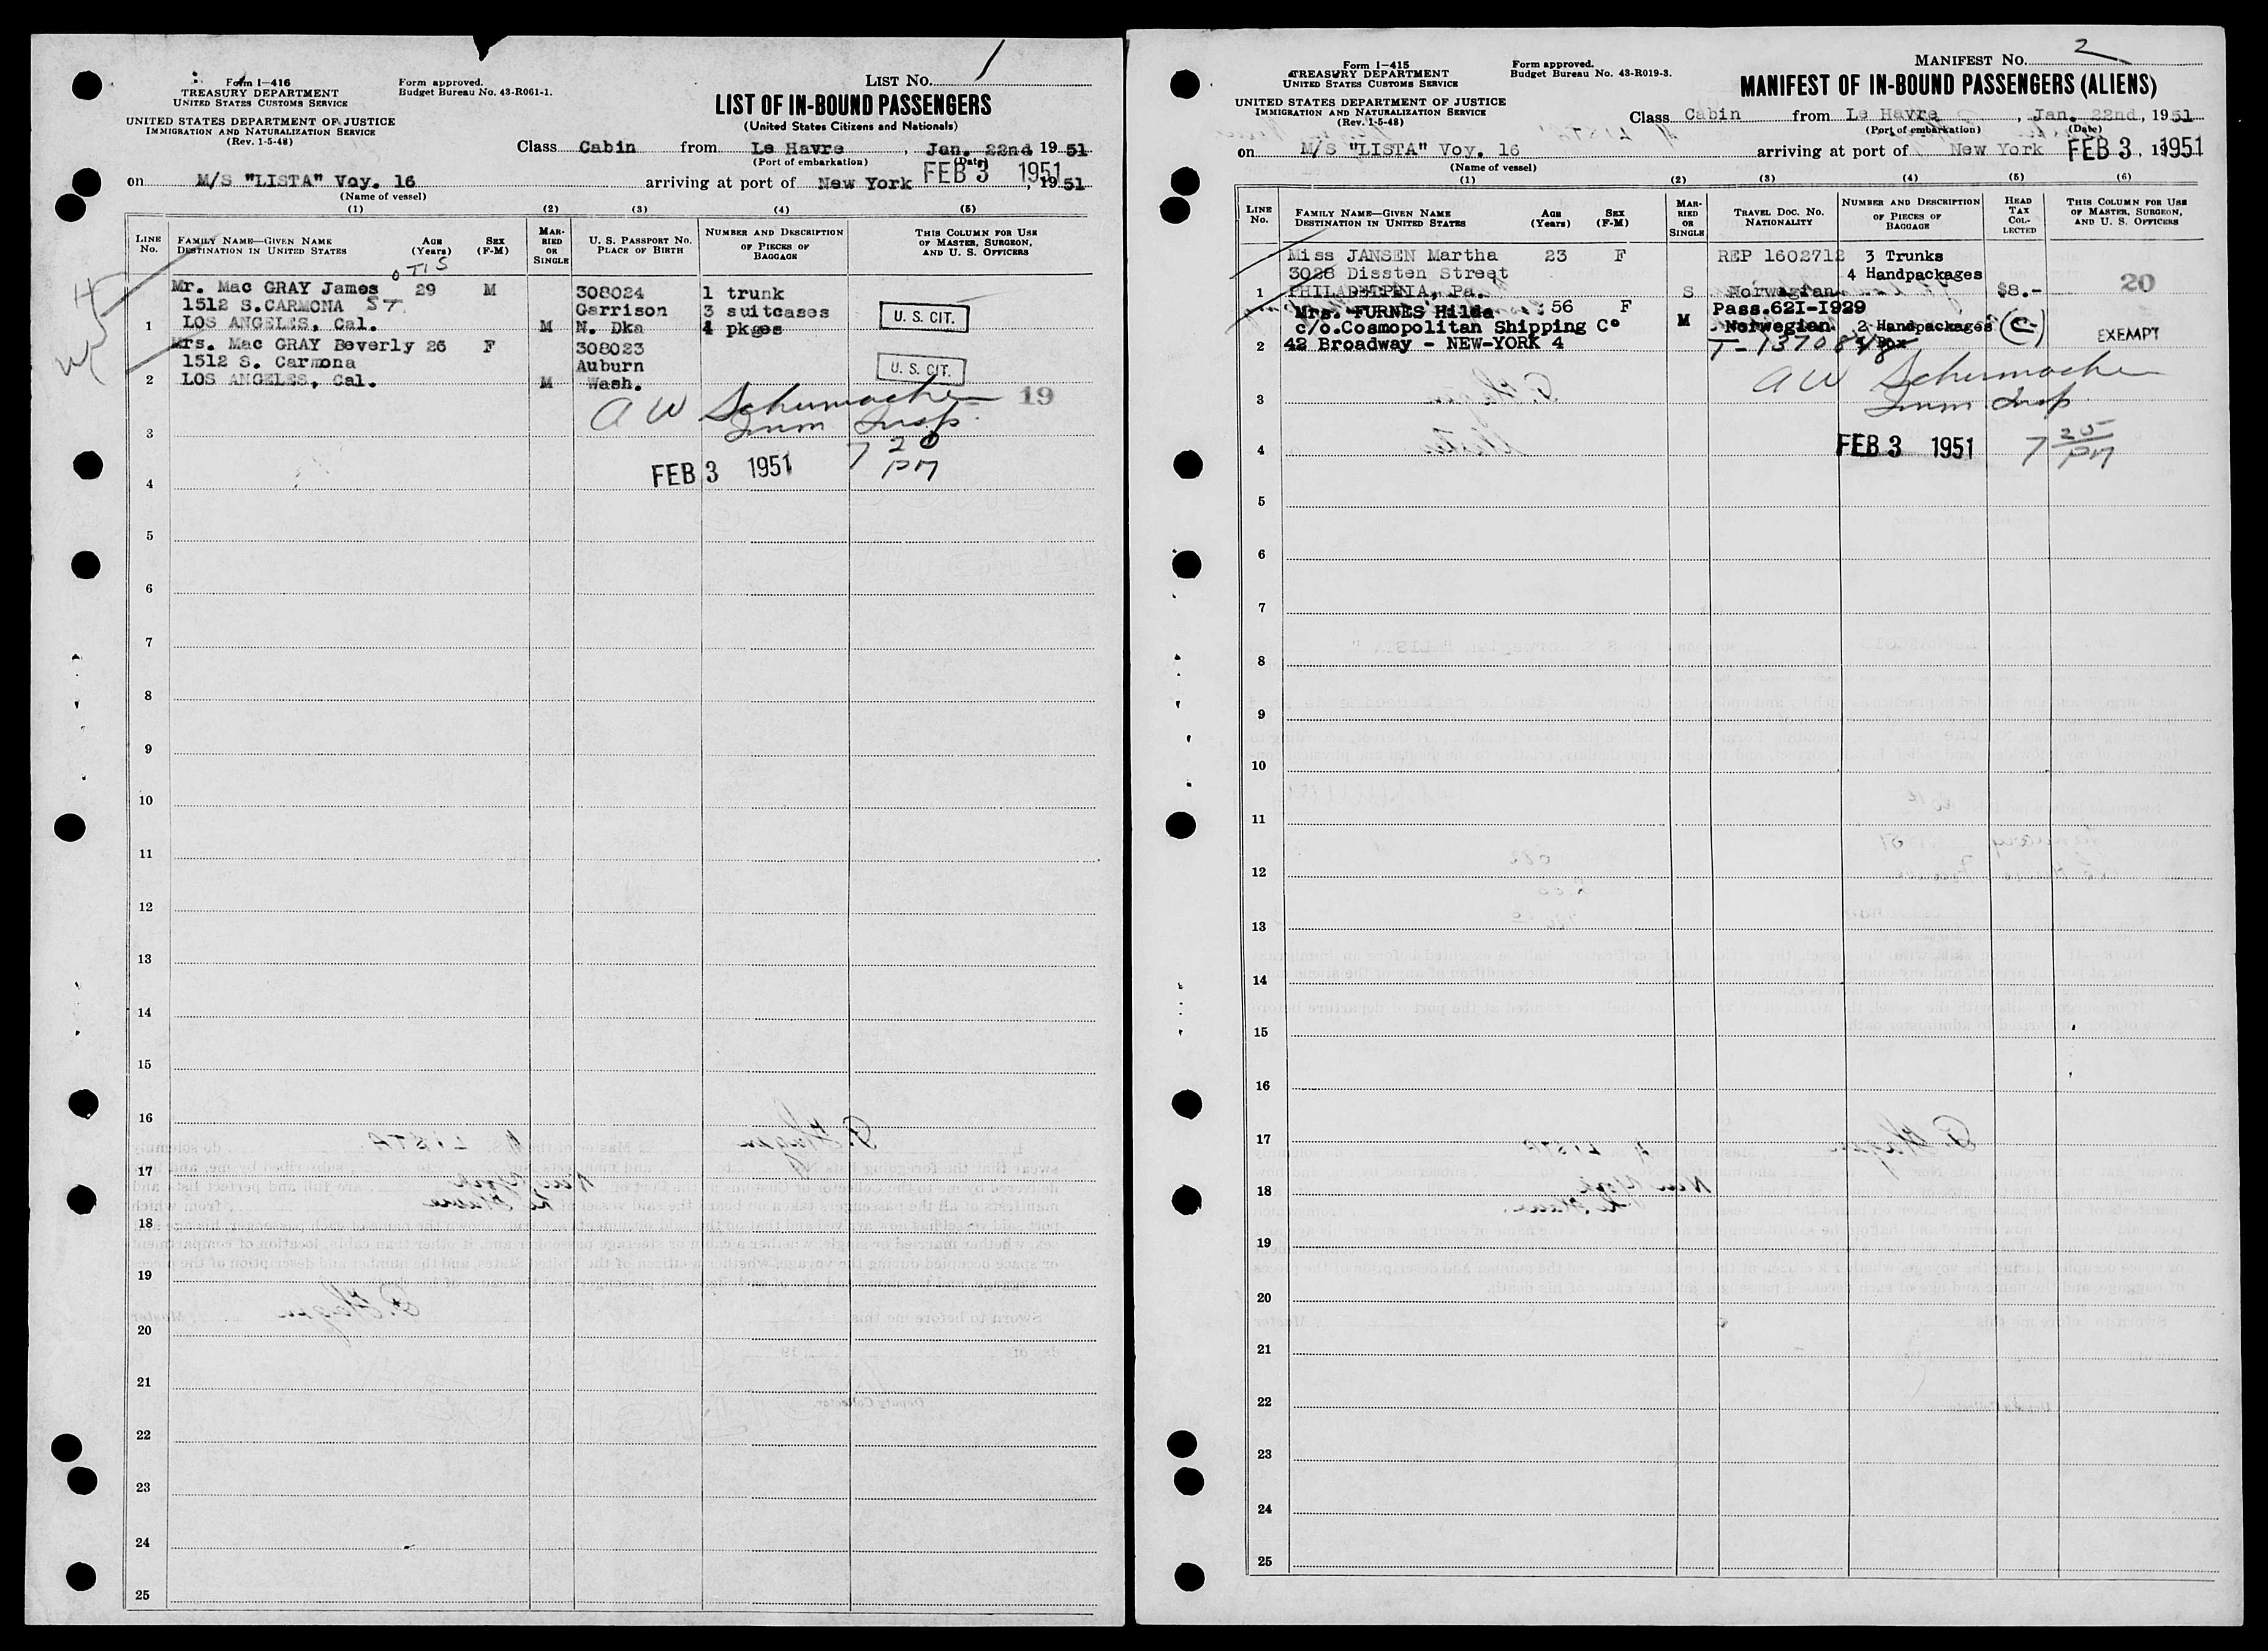 1
Form I-416
TREASURY DEPARTMENT
UNITED STATES CUSTOMS SERVICE
UNITED STATES DEPARTMENT OF JUSTICE
IMMIGRATION AND NATURALIZATION SERVICE
(Rev. 1-5-48)
Form approved.
Budget Bureau No. 43-R061-1.
LIST NO.
LIST OF IN-BOUND PASSENGERS
(United States Citizens and Nationals)
Class Cabin from Le Havre , Jan. 22nd 1951
(Port of embarkation) (Date)
FEB 3 1951
on M/S "LISTA" Voy. 16 arriving at port of New York , 1951
(Name of vessel)
(1) (2) (3) (4) (5)
LINE NO. FAMILY NAME—GIVEN NAME DESTINATION IN UNITED STATES AGE (Years) SEX (F-M) MARRIED OR SINGLE U. S. PASSPORT NO. PLACE OF BIRTH NUMBER AND DESCRIPTION OF PIECES OF BAGGAGE THIS COLUMN FOR USE OF MASTER, SURGEON, AND U. S. OFFICERS
OTIS
Mr. Mac GRAY James 29 M 308024 1 trunk
1512 S.CARMONA ST Garrison 3 suitcases U. S. CIT.
1 LOS ANGELES, Cal. M N. Dka 4 pkges
Mrs. Mac GRAY Beverly 26 F 308023
1512 S. Carmona Auburn U. S. CIT.
2 LOS ANGELES, Cal. M Wash.
A W Schumacher 19
Imm Insp.
3
7 20 PM
FEB 3 1951
4
5
6
7
8
9
10
11
12
13
14
15
16
17
18
19
20
21
22
23
24
25
2
Form I-415
TREASURY DEPARTMENT
UNITED STATES CUSTOMS SERVICE
UNITED STATES DEPARTMENT OF JUSTICE
IMMIGRATION AND NATURALIZATION SERVICE
(Rev. 1-5-48)
Form approved.
Budget Bureau No. 43-R019-3.
MANIFEST NO.
MANIFEST OF IN-BOUND PASSENGERS (ALIENS)
Class Cabin from Le Havre , Jan. 22nd, 1951
(Port of embarkation) (Date)
on M/S "LISTA" Voy. 16 arriving at port of New York FEB 3 , 1951
(Name of vessel)
(1) (2) (3) (4) (5) (6)
LINE NO. FAMILY NAME—GIVEN NAME DESTINATION IN UNITED STATES AGE (Years) SEX (F-M) MARRIED OR SINGLE TRAVEL DOC. NO. NATIONALITY NUMBER AND DESCRIPTION OF PIECES OF BAGGAGE HEAD TAX COLLECTED THIS COLUMN FOR USE OF MASTER, SURGEON, AND U. S. OFFICERS
Miss JANSEN Martha 23 F REP 1602712 3 Trunks
3028 Dissten Street 4 Handpackages
1 PHILADELPHIA, Pa. S Norwegian $8.- 20
Mrs. FURNES Hilda 56 F Pass.62I-I929
c/o.Cosmopolitan Shipping C° M Norwegian 2 Handpackages
2 42 Broadway - NEW-YORK 4 T-1370848 1 Box EXEMPT
A W Schumacher
3 Imm. Insp.
4 FEB 3 1951 7 25 PM
5
6
7
8
9
10
11
12
13
14
15
16
17
18
19
20
21
22
23
24
25